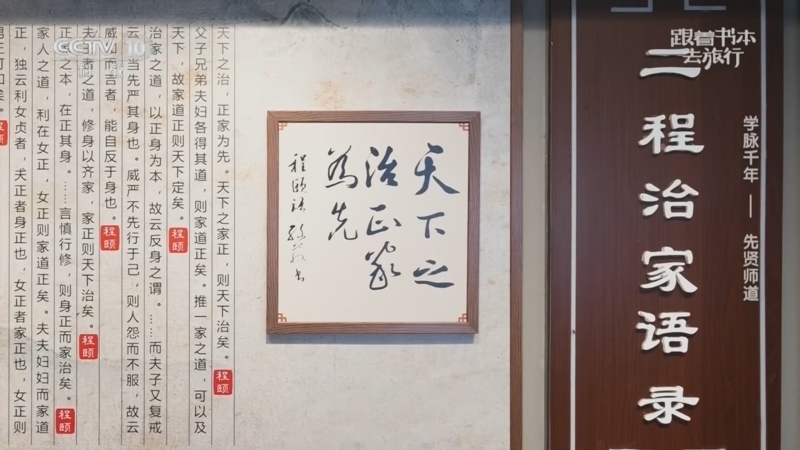 CCTV 10
跟着书本
去旅行
二程治家语录
学脉千年 — 先贤师道
天下之
治正家
為先
程颐语
天下之治，正家为先。天下之家正，则天下治矣。程颐
父子兄弟夫妇各得其道，则家道正矣。推一家之道，可以及
天下，故家道正则天下定矣。程颐
治家之道，以正身为本，故云反身之谓。……而夫子又复戒
云，当先严其身也。威严不先行于己，则人怨而不服，故云
威如而吉者，能自反于身也。程颐
夫王者之道，修身以齐家，家正则天下治矣。程颐
正家之本，在正其身。……言慎行修，则身正而家治矣。程颐
家人之道，利在女正，女正则家道正矣。夫夫妇妇而家道
正，独云利女贞者，夫正者身正也，女正者家正也，女正则
男正可知矣。程颐